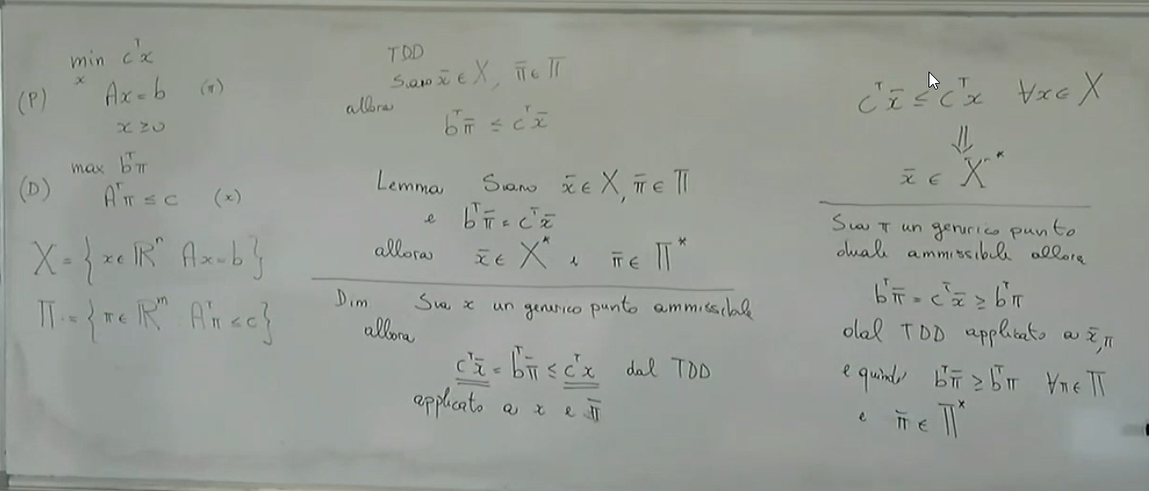 min cᵀx
x
(P) Ax = b (π)
x ≥ 0
max bᵀπ
(D) Aᵀπ ≤ c (x)
X = { x ∈ ℝⁿ Ax = b }
Π = { π ∈ ℝᵐ : Aᵀπ ≤ c }
TDD
Siano x̄ ∈ X, π̄ ∈ Π
allora
bᵀπ̄ ≤ cᵀx̄
Lemma Siano x̄ ∈ X, π̄ ∈ Π
e bᵀπ̄ = cᵀx̄
allora x̄ ∈ X* e π̄ ∈ Π*
Dim Sia x un generico punto ammissibile
allora
cᵀx̄ = bᵀπ̄ ≤ cᵀx dal TDD
applicato a x e π̄
cᵀx̄ ≤ cᵀx ∀x ∈ X
⇓
x̄ ∈ X*
Sia π un generico punto
duale ammissibile allora
bᵀπ̄ = cᵀx̄ ≥ bᵀπ
dal TDD applicato a x̄, π
e quindi bᵀπ̄ ≥ bᵀπ ∀π ∈ Π
e π̄ ∈ Π*